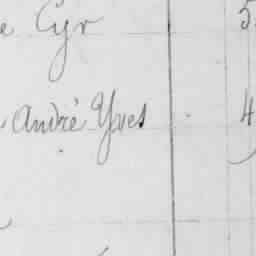 e Cyr 5
André Yves 4